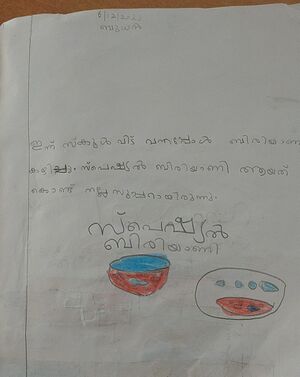 6/12/2022
ബുധൻ
ഇന്ന് സ്കൂൾ വിട്ട് വന്നപ്പോൾ ബിരിയാണി
കഴിച്ചു. സ്പെഷ്യൽ ബിരിയാണി ആയത്
കൊണ്ട് നല്ല സൂപ്പറായിരുന്നു.
സ്പെഷ്യൽ
ബിരിയാണി